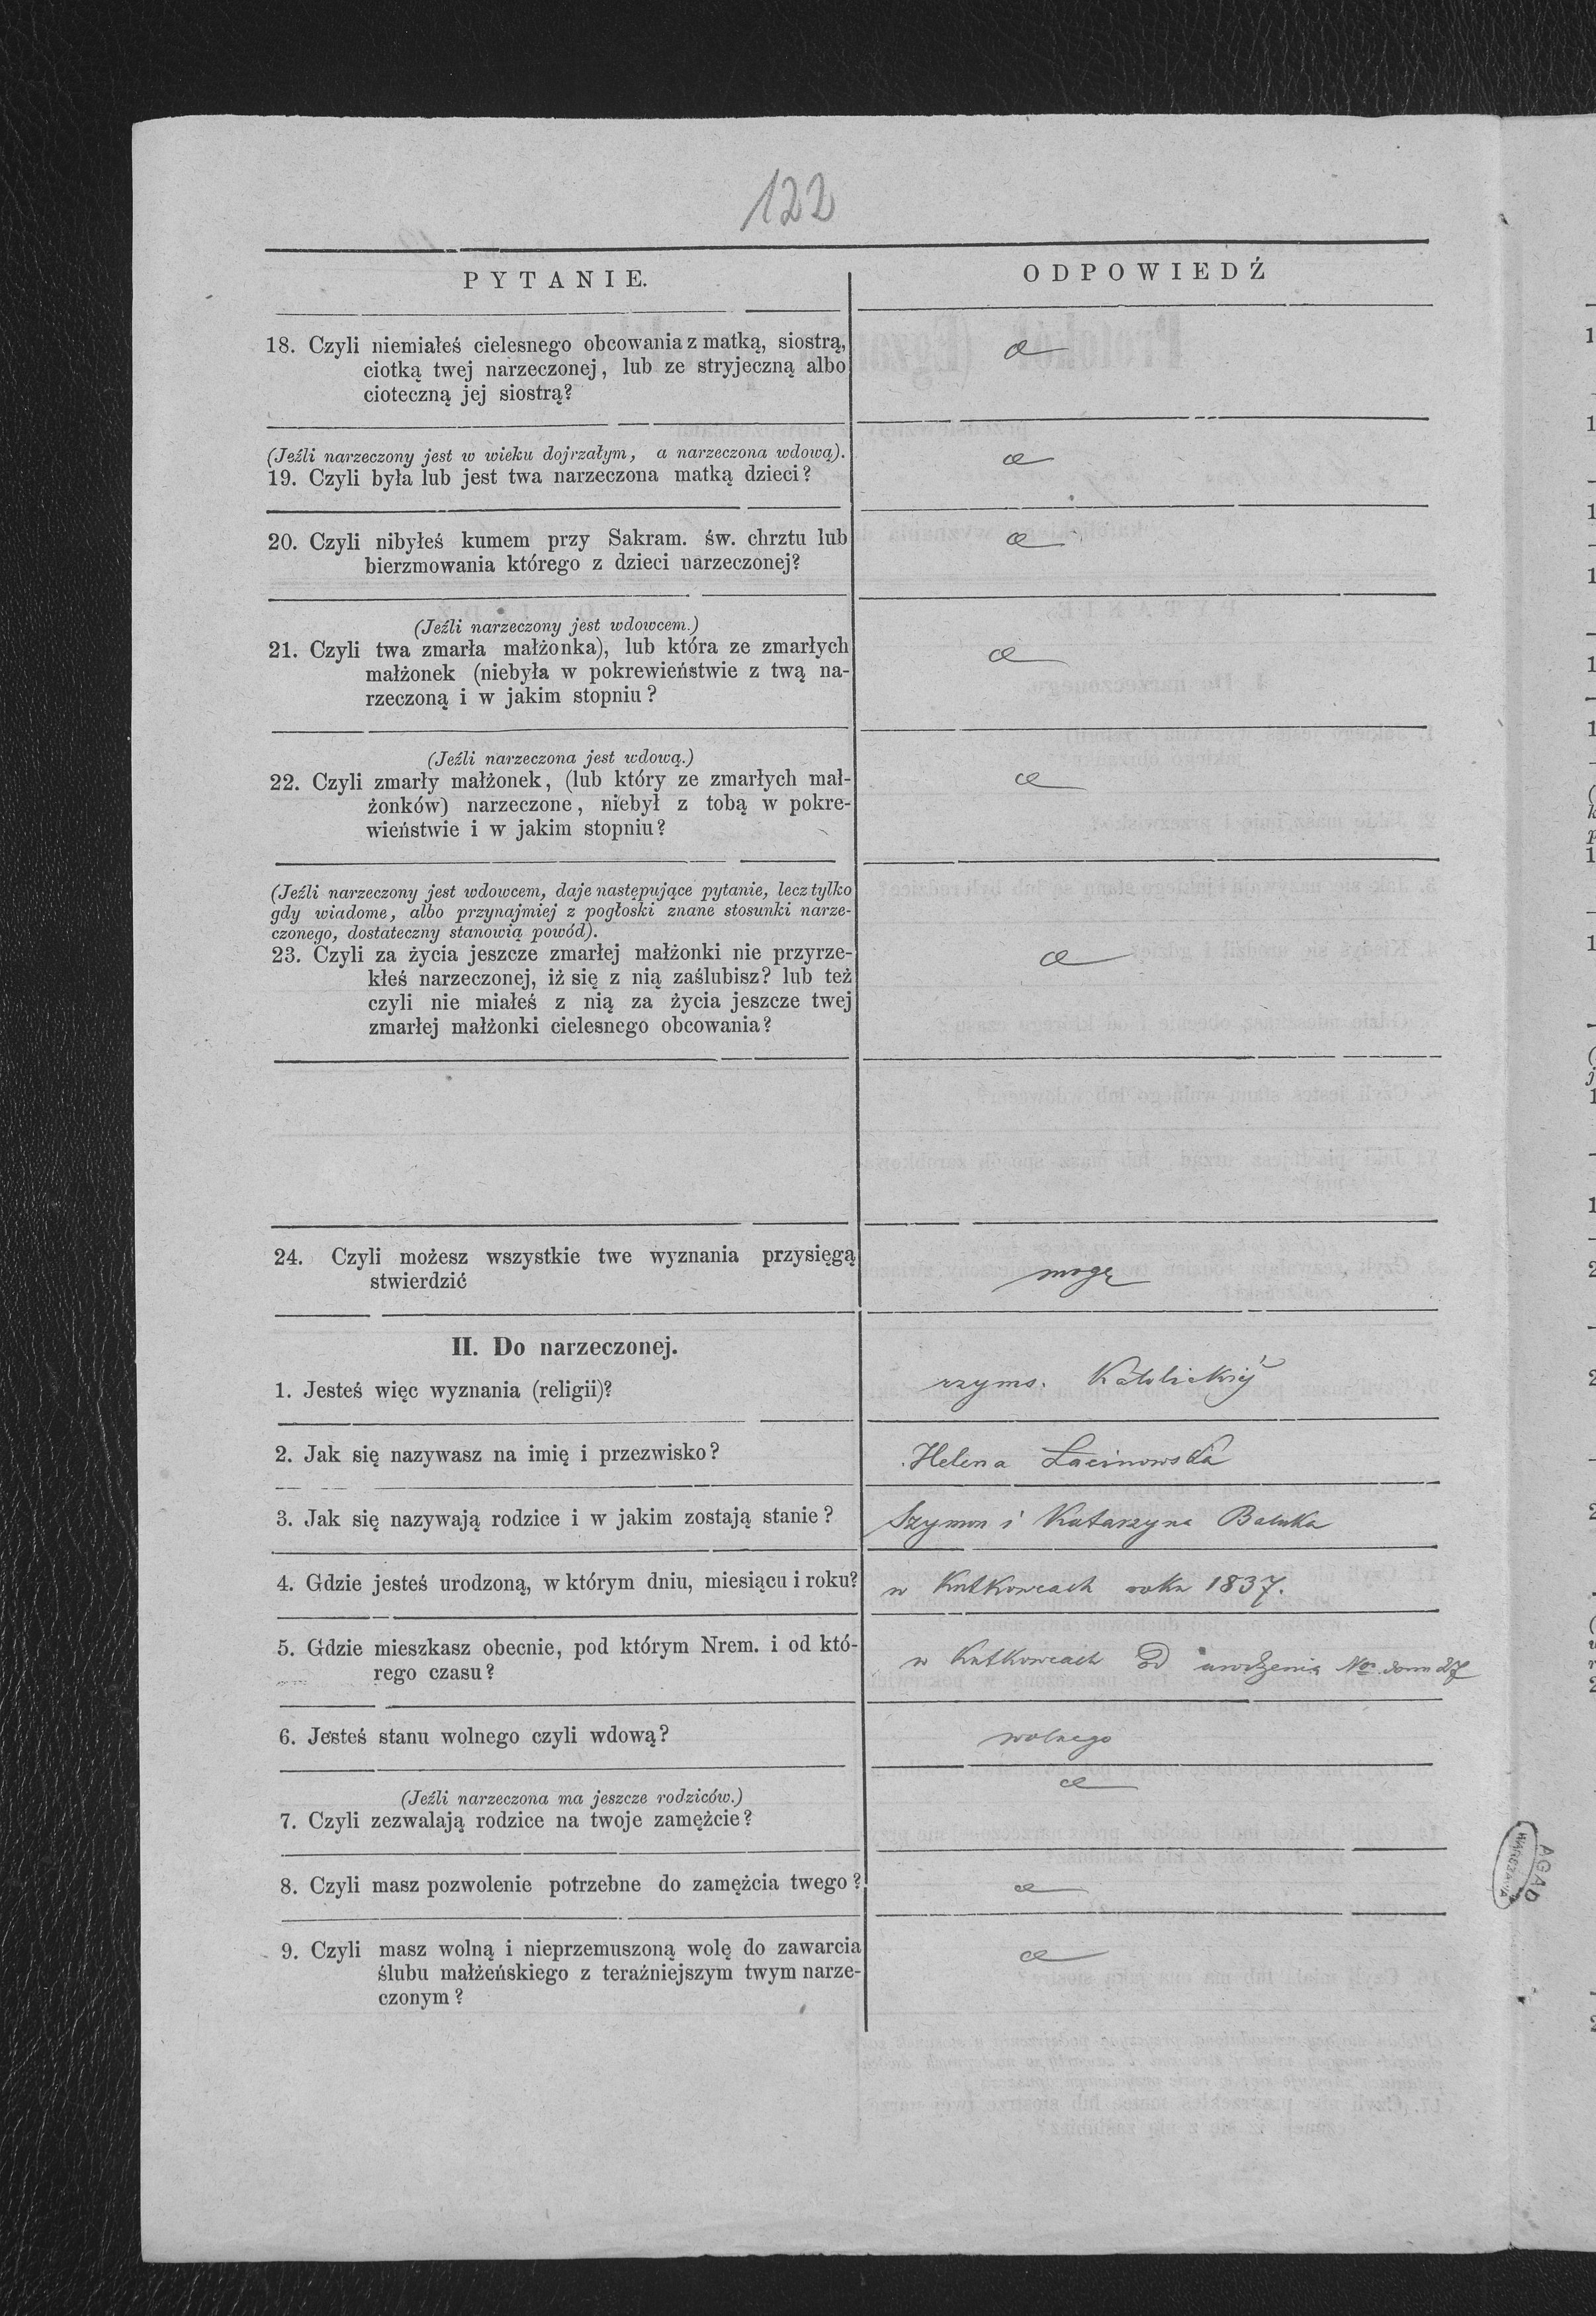 122
PYTANIE.
ODPOWIEDŹ
18. Czyli niemiałeś cielesnego obcowania z matką, siostrą,
ciotką twej narzeczonej, lub ze stryjeczną albo
cioteczną jej siostrą?
(Jeźli narzeczony jest w wieku dojrzałym, a narzeczona wdową).
19. Czyli była lub jest twa narzeczona matką dzieci?
20. Czyli nibyłeś kumem przy Sakram. św. chrztu lub
bierzmowania którego z dzieci narzeczonej?
(Jeźli narzeczony jest wdowcem.)
21. Czyli twa zmarła małżonka), lub która ze zmarłych
małżonek (niebyła w pokrewieństwie z twą na-
rzeczoną i w jakim stopniu?
(Jeźli narzeczona jest wdową.)
22. Czyli zmarły małżonek, (lub który ze zmarłych mał-
żonków) narzeczone, niebył z tobą w pokre-
wieństwie i w jakim stopniu?
(Jeźli narzeczony jest wdowcem, daje następujące pytanie, lecz tylko
gdy wiadome, albo przynajmiej z pogłoski znane stosunki narze-
czonego, dostateczny stanowią powód).
23. Czyli za życia jeszcze zmarłej małżonki nie przyrze-
kłeś narzeczonej, iż się z nią zaślubisz? lub też
czyli nie miałeś z nią za życia jeszcze twej
zmarłej małżonki cielesnego obcowania?
24. Czyli możesz wszystkie twe wyznania przysięgą
stwierdzić
mogę
II. Do narzeczonej.
1. Jesteś więc wyznania (religii)?
rzyms. Katolickiéj
2. Jak się nazywasz na imię i przezwisko?
Helena Łacinowska
3. Jak się nazywają rodzice i w jakim zostają stanie?
Szymon i Katarzyna Bałuka
4. Gdzie jesteś urodzoną, w którym dniu, miesiącu i roku?
w Kutkowcach roku 1837.
5. Gdzie mieszkasz obecnie, pod którym Nrem. i od któ-
rego czasu?
w Kutkowcach od urodzenia Nro domu 27
6. Jesteś stanu wolnego czyli wdową?
wolnego
(Jeźli narzeczona ma jeszcze rodziców.)
7. Czyli zezwalają rodzice na twoje zamężcie?
8. Czyli masz pozwolenie potrzebne do zamężcia twego?
9. Czyli masz wolną i nieprzemuszoną wolę do zawarcia
ślubu małżeńskiego z teraźniejszym twym narze-
czonym?
AGAD
WARSZAWA